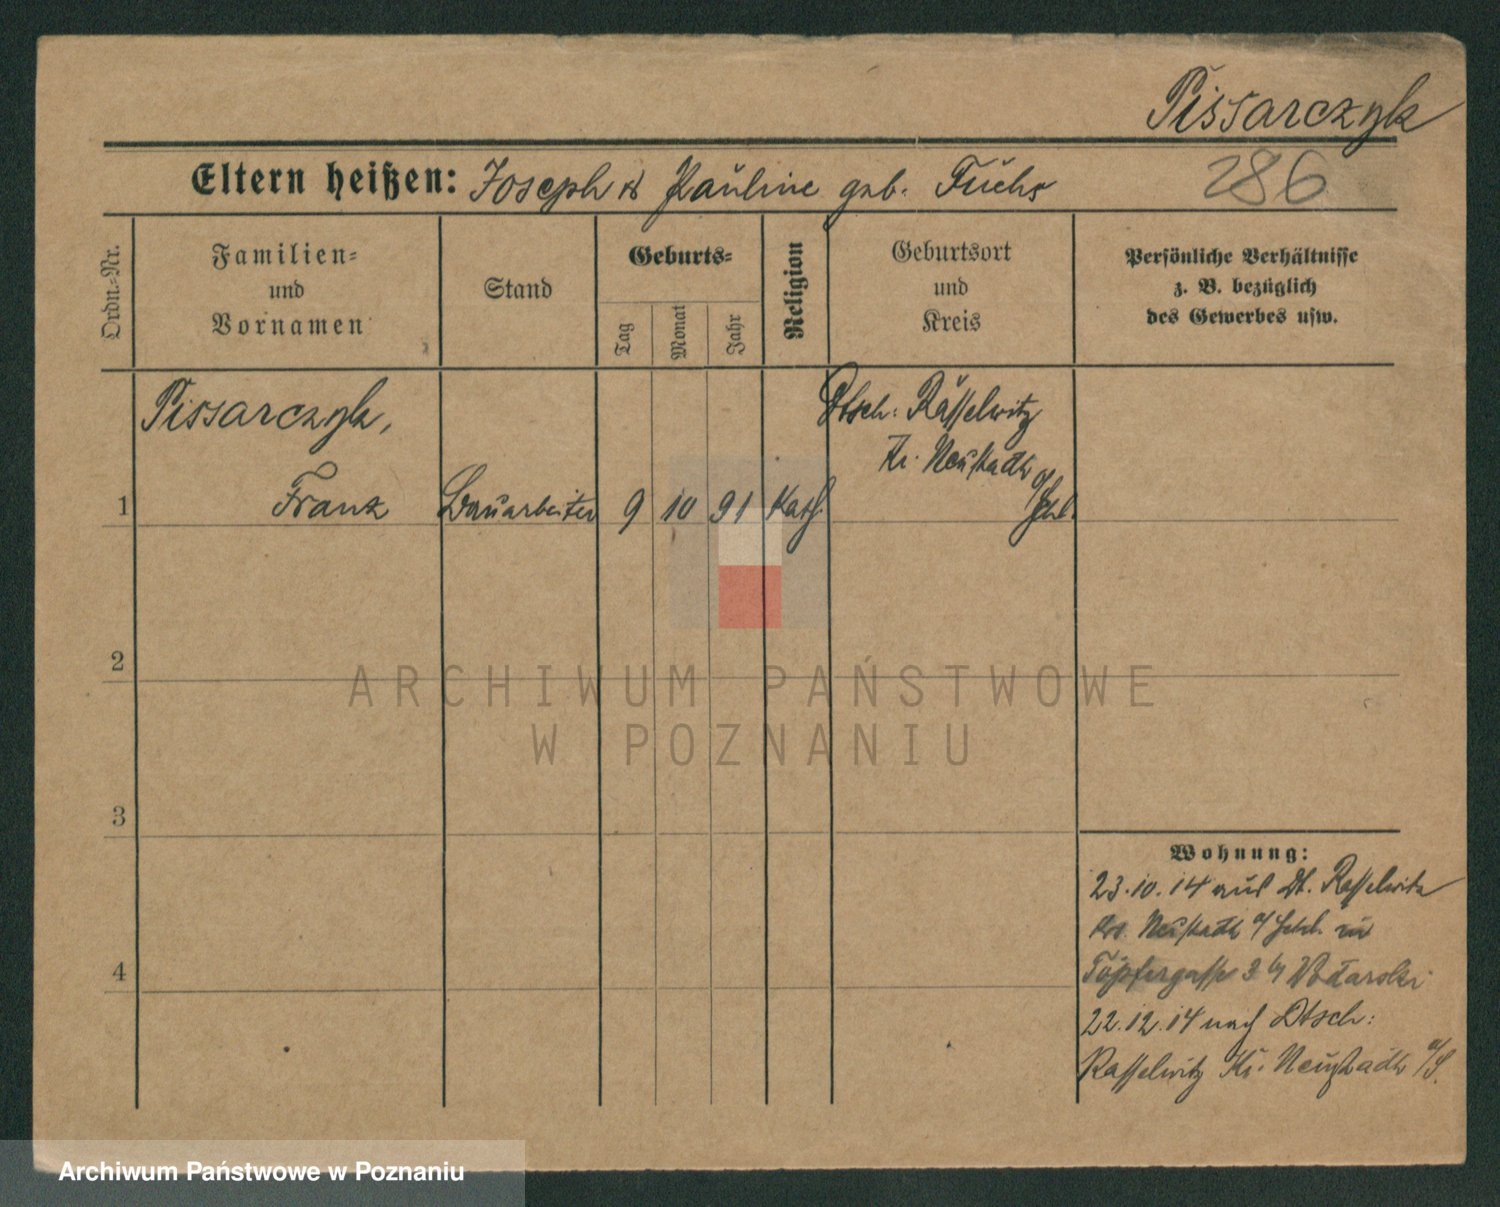 Pissarczyk
286
Eltern heißen: Joseph & Pauline geb. Fuchs
Ordn.-Nr.
Familien- und Vornamen
Stand
Geburts-
Tag
Monat
Jahr
Religion
Geburtsort und Kreis
Persönliche Verhältnisse
z. B. bezüglich
des Gewerbes usw.
Pissarczyk,
Dtsch: Rasselwitz
Kr. Neustadt
1 Franz Bauarbeiter 9 10 91 Kath. o/Schl.
2
3
4
Wohnung:
23.10.14 aus Dt. Rasselwitz
Krs. Neustadt o/Schl. in
Töpfergasse 3 b/
22.12.14 nach Dtsch:
Rasselwitz Kr. Neustadt o/S.
ARCHIWUM PAŃSTWOWE
W POZNANIU
Archiwum Państwowe w Poznaniu